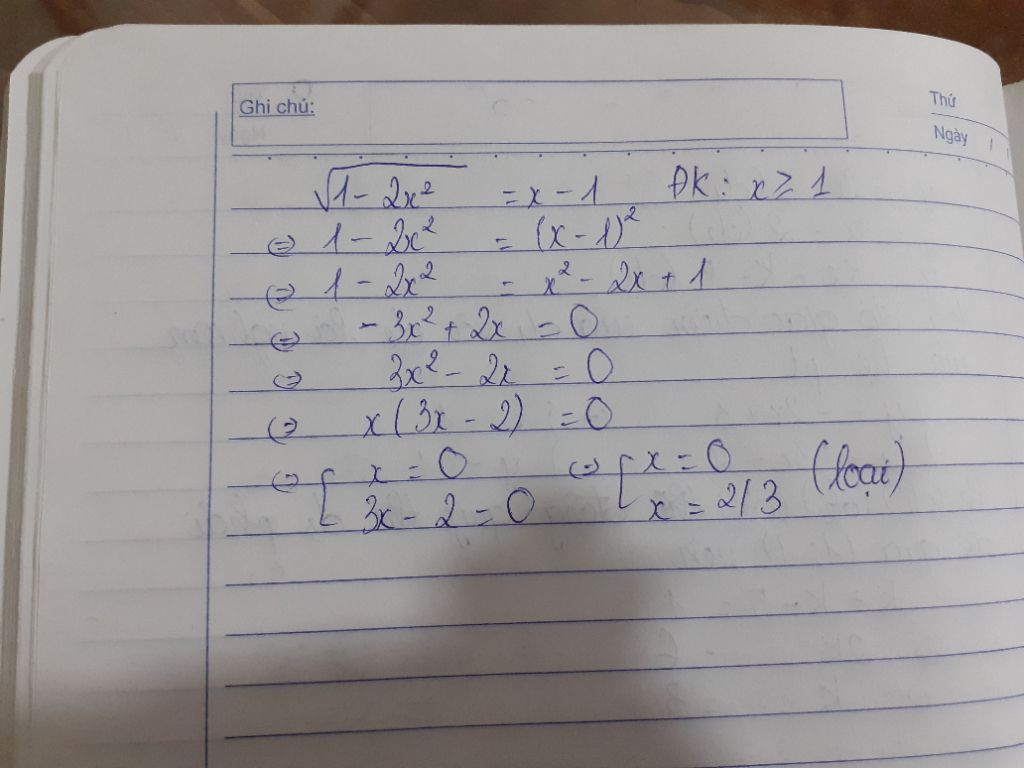 Ghi chú:
Thứ
Ngày
√(1 - 2x²) = x - 1 ĐK: x ≥ 1
⇔ 1 - 2x² = (x - 1)²
⇔ 1 - 2x² = x² - 2x + 1
⇔ - 3x² + 2x = 0
⇔ 3x² - 2x = 0
⇔ x(3x - 2) = 0
⇔ [ x = 0 ⇔ [ x = 0 (loại)
3x - 2 = 0 x = 2/3